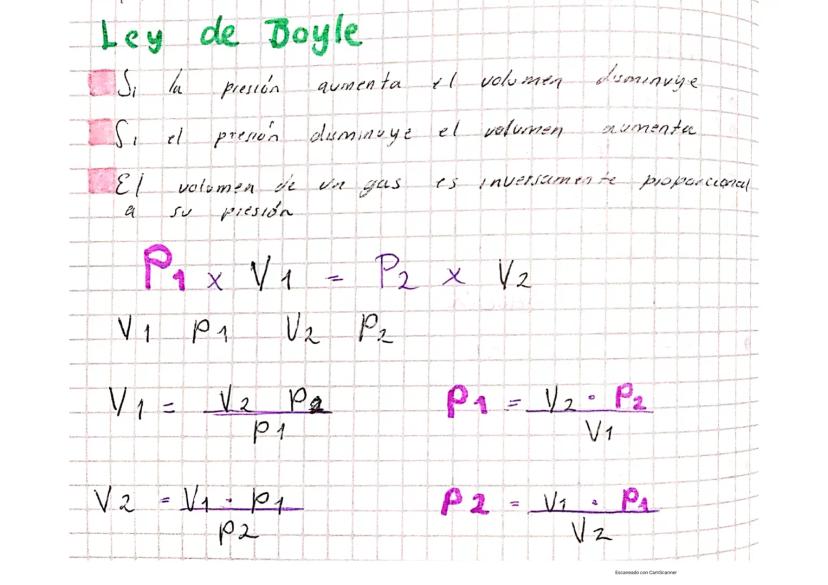 Ley de Boyle
Si la presión aumenta el volumen disminuye
Si el presión disminuye el volumen aumenta
El volumen de un gas es inversamente proporcional
a su presión
P1 x V1 = P2 x V2
V1 P1 V2 P2
V1 = V2 P2 / P1
P1 = V2 · P2 / V1
V2 = V1 · P1 / P2
P2 = V1 · P1 / V2
Escaneado con CamScanner